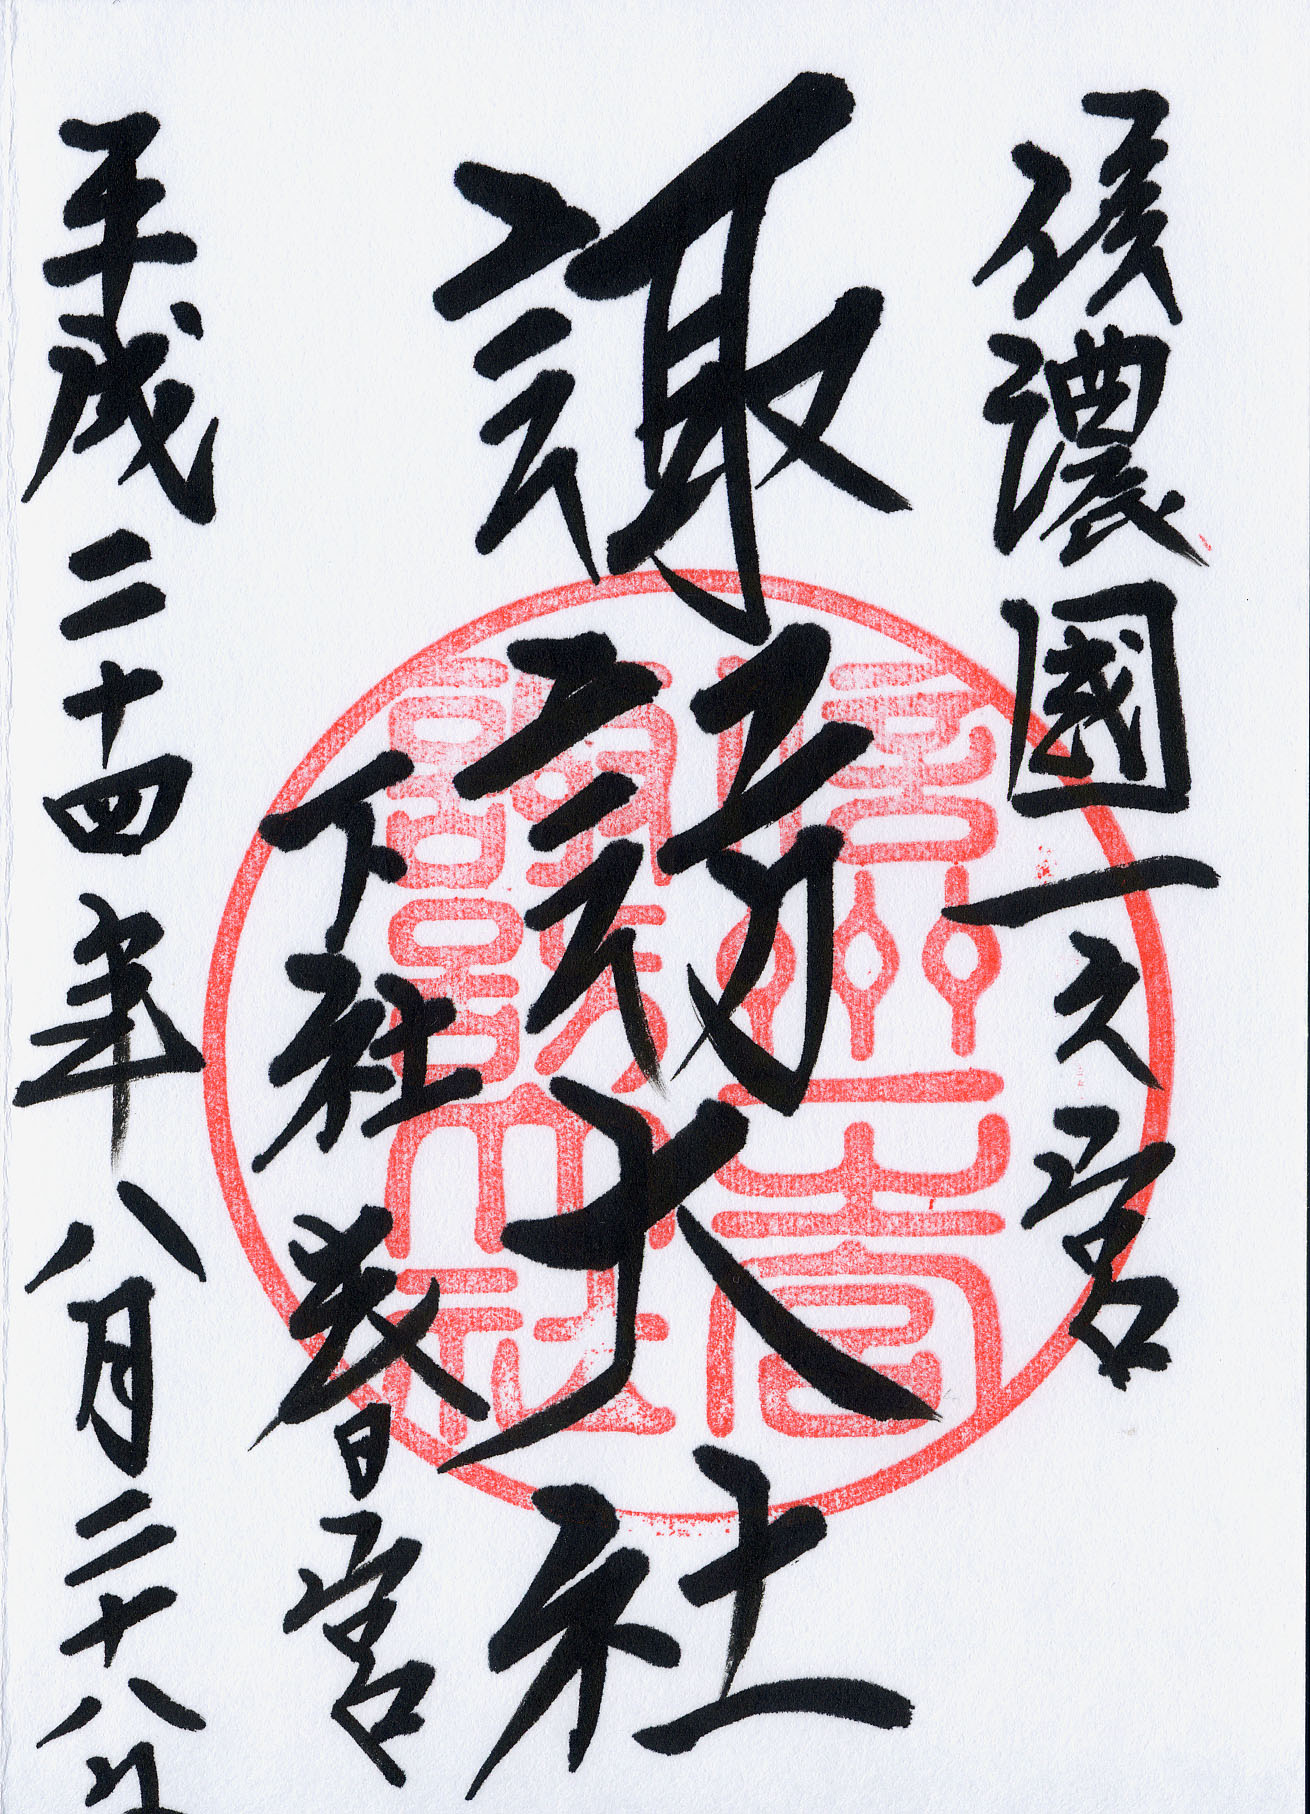 信濃國一之宮
諏訪大社
下社春宮
平成二十四年八月二十八日
信州一之宮
諏訪大社